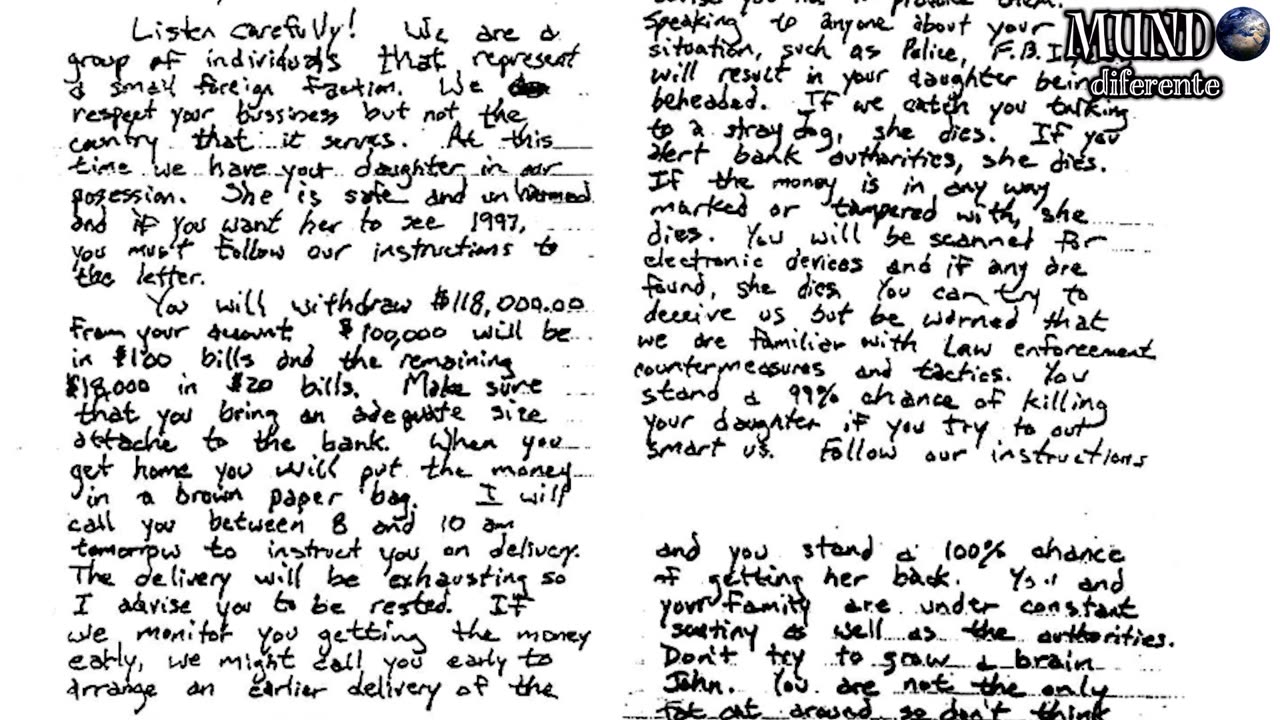 Listen carefully! We are a
group of individuals that represent
a small foreign faction. We
respect your bussiness but not the
country that it serves. At this
time we have your daughter in our
posession. She is safe and unharmed
and if you want her to see 1997,
you must follow our instructions to
the letter.
You will withdraw $118,000.00
from your account. $100,000 will be
in $100 bills and the remaining
$18,000 in $20 bills. Make sure
that you bring an adequate size
attache to the bank. When you
get home you will put the money
in a brown paper bag. I will
call you between 8 and 10 am
tomorrow to instruct you on delivery.
The delivery will be exhausting so
I advise you to be rested. If
we monitor you getting the money
early, we might call you early to
arrange an earlier delivery of the
Speaking to anyone about your
situation, such as Police, F.B.I.
will result in your daughter being
beheaded. If we catch you talking
to a stray dog, she dies. If you
alert bank authorities, she dies.
If the money is in any way
marked or tampered with, she
dies. You will be scanned for
electronic devices and if any are
found, she dies. You can try to
deceive us but be warned that
we are familiar with Law enforcement
countermeasures and tactics. You
stand a 99% chance of killing
your daughter if you try to out
smart us. Follow our instructions
and you stand a 100% chance
of getting her back. You and
your family are under constant
scutiny as well as the authorities.
Don't try to grow a brain
John. You are not the only
fat cat around so don't think
MUNDO
diferente